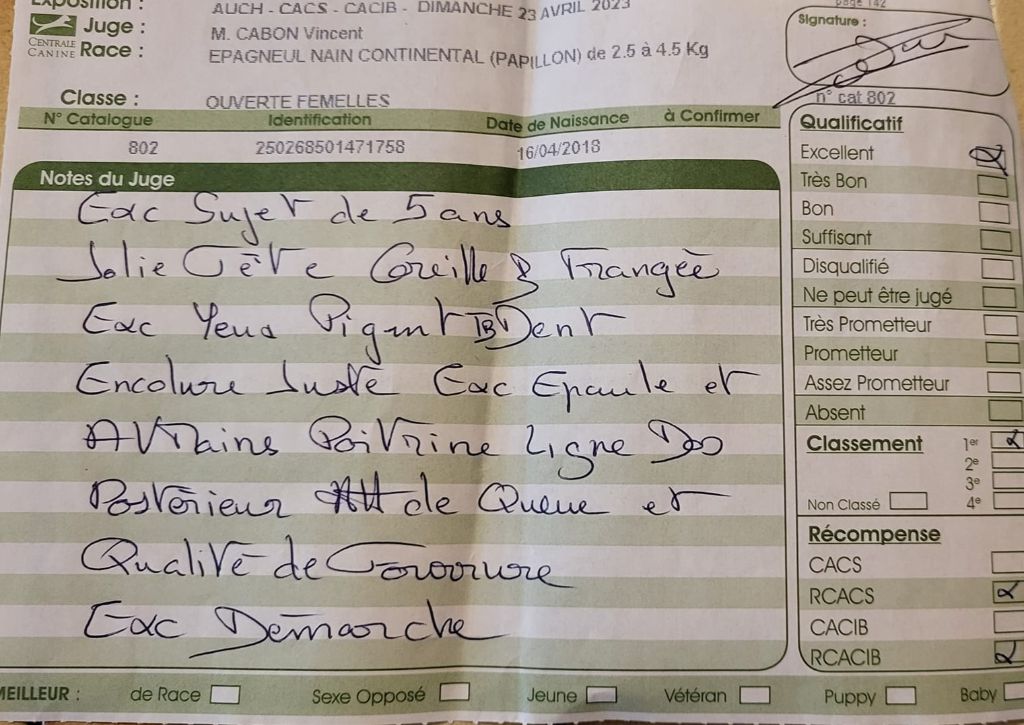 Exposition : AUCH - CACS - CACIB - DIMANCHE 23 AVRIL 2023
page 142
Juge : M. CABON Vincent
Signature :
CENTRALE CANINE
Race : EPAGNEUL NAIN CONTINENTAL (PAPILLON) de 2.5 à 4.5 Kg
Classe : OUVERTE FEMELLES
n° cat 802
N° Catalogue Identification Date de Naissance à Confirmer
802 250268501471758 16/04/2018
Notes du Juge
Exc Sujet de 5 ans
Jolie Tête Oreille Frangée
Exc Yeux Pigmt TB Dent
Encolure Juste Exc Epaule et
AV Mains Poitrine Ligne Dos
Postérieur Att de Queue et
Qualité de Fourrure
Exc Démarche
Qualificatif
Excellent
Très Bon
Bon
Suffisant
Disqualifié
Ne peut être jugé
Très Prometteur
Prometteur
Assez Prometteur
Absent
Classement 1er
2e
3e
Non Classé 4e
Récompense
CACS
RCACS
CACIB
RCACIB
MEILLEUR : de Race Sexe Opposé Jeune Vétéran Puppy Baby